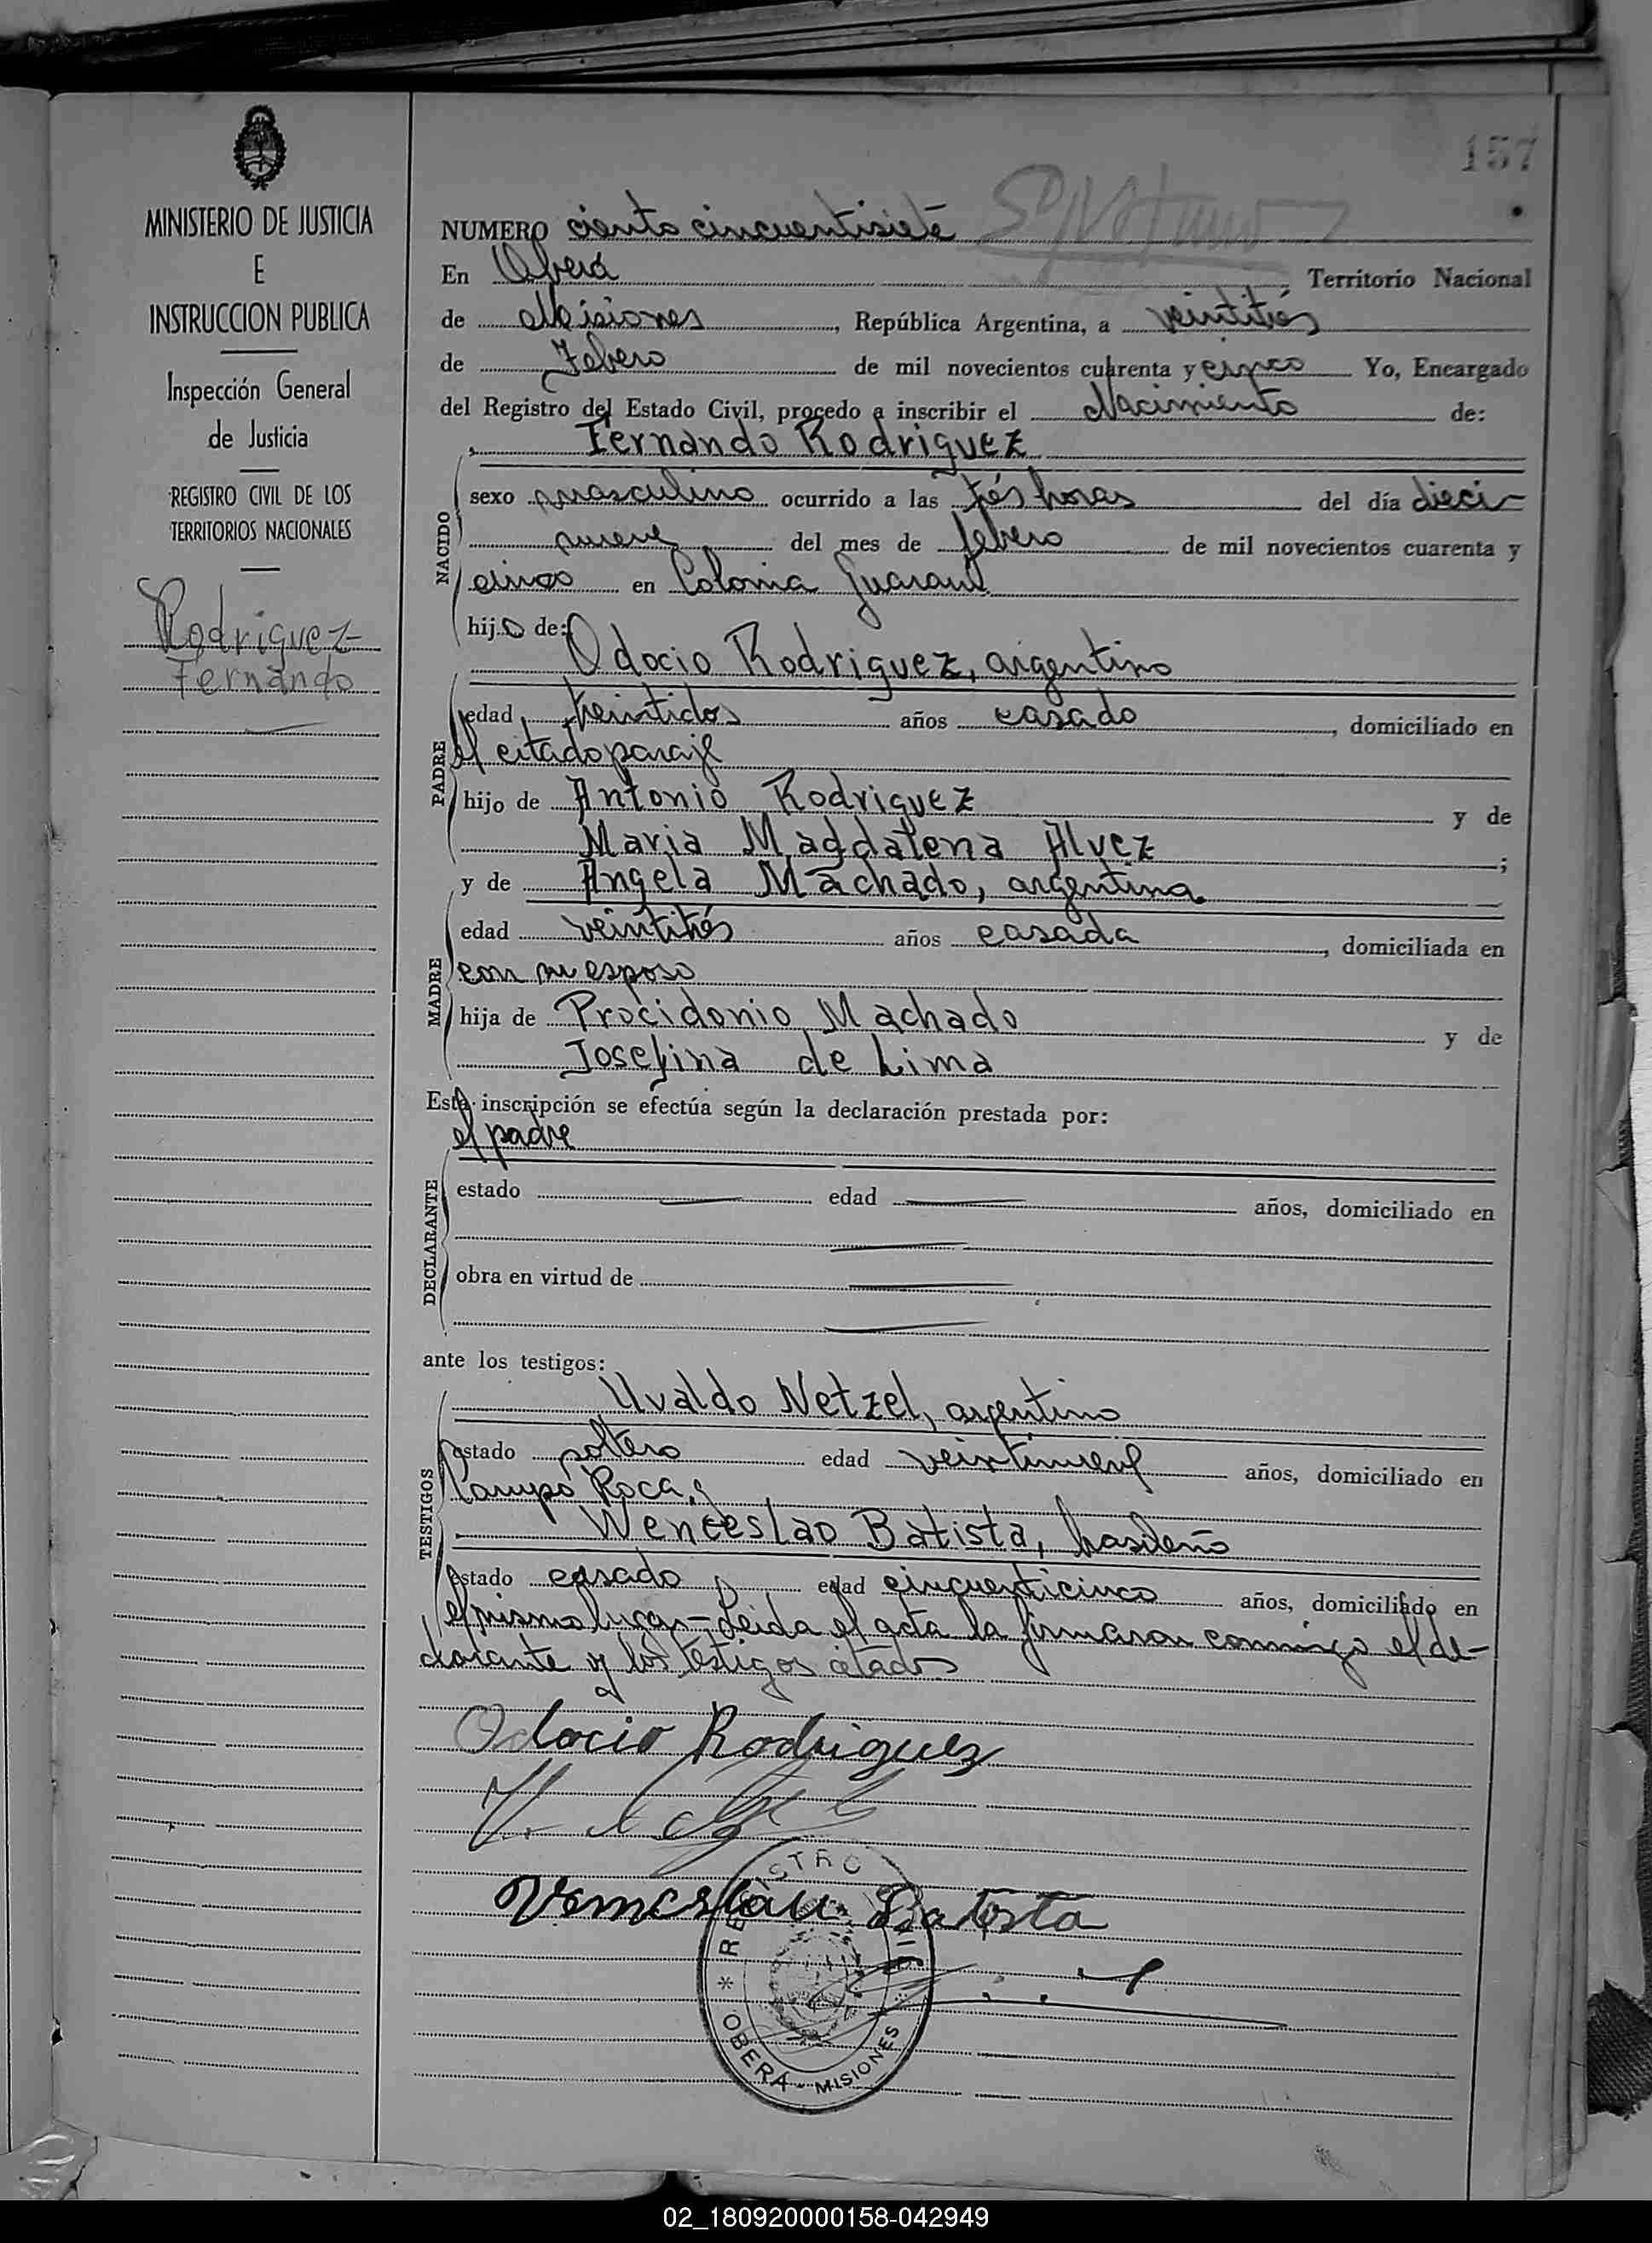 157
MINISTERIO DE JUSTICIA
E
INSTRUCCION PUBLICA
Inspección General
de Justicia
REGISTRO CIVIL DE LOS
TERRITORIOS NACIONALES
Rodriguez
Fernando
NUMERO ciento cincuentisiete
En Oberá, Territorio Nacional
de Misiones, República Argentina, a veintitrés
de Febrero de mil novecientos cuarenta y cinco Yo, Encargado
del Registro del Estado Civil, procedo a inscribir el Nacimiento de:
Fernando Rodriguez
NACIDO
sexo masculino ocurrido a las trés horas del día dieci-
nueve del mes de febrero de mil novecientos cuarenta y
cinco en Colonia Guaraní
hijo de:
Odocio Rodriguez, argentino
PADRE
edad treintidos años casado, domiciliado en
el citado paraje
hijo de Antonio Rodriguez y de
Maria Magdalena Alvez;
y de Angela Machado, argentina
MADRE
edad veintitrés años casada, domiciliada en
con su esposo
hija de Procidonio Machado y de
Josefina de Lima
Esta inscripción se efectúa según la declaración prestada por:
el padre
DECLARANTE
estado edad años, domiciliado en
obra en virtud de
ante los testigos:
TESTIGOS
Uvaldo Netzel, argentino
estado soltero edad veintinueve años, domiciliado en
Campo Roca, y
Wenceslao Batista, brasileño
estado casado edad cincuenticinco años, domiciliado en
el mismo lugar - Leida el acta la firmaron conmigo el de-
clarante y los testigos citados
Odocio Rodriguez
Vemceslau Batista
REGISTRO CIVIL
* OBERÁ - MISIONES
02_180920000158-042949